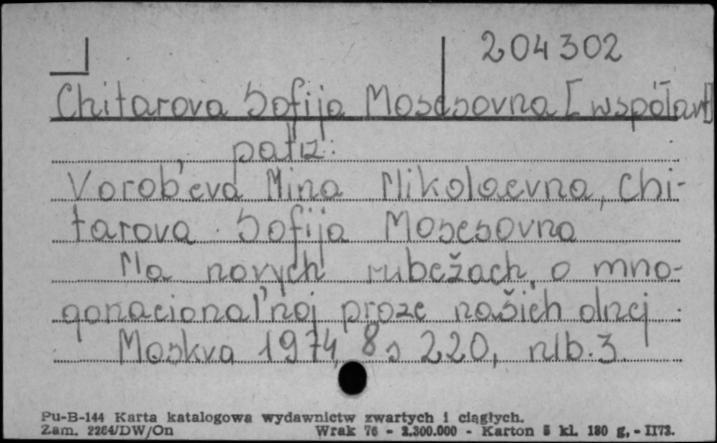 204302
Chitarova Sofija Mosesovna [współaut]
patrz:
Vorob'eva Nina Nikolaevna, Chi-
tarova Sofija Mosesovna
Na novych rubežach, o mno-
gonacional'noj proze našich dnej.
Moskva 1974, 8 s 220, nlb. 3
Pu-B-144 Karta katalogowa wydawnictw zwartych i ciągłych.
Zam. 2264/DW/On Wrak 76 - 2.300.000 - Karton 5 kl. 180 g. - II73.